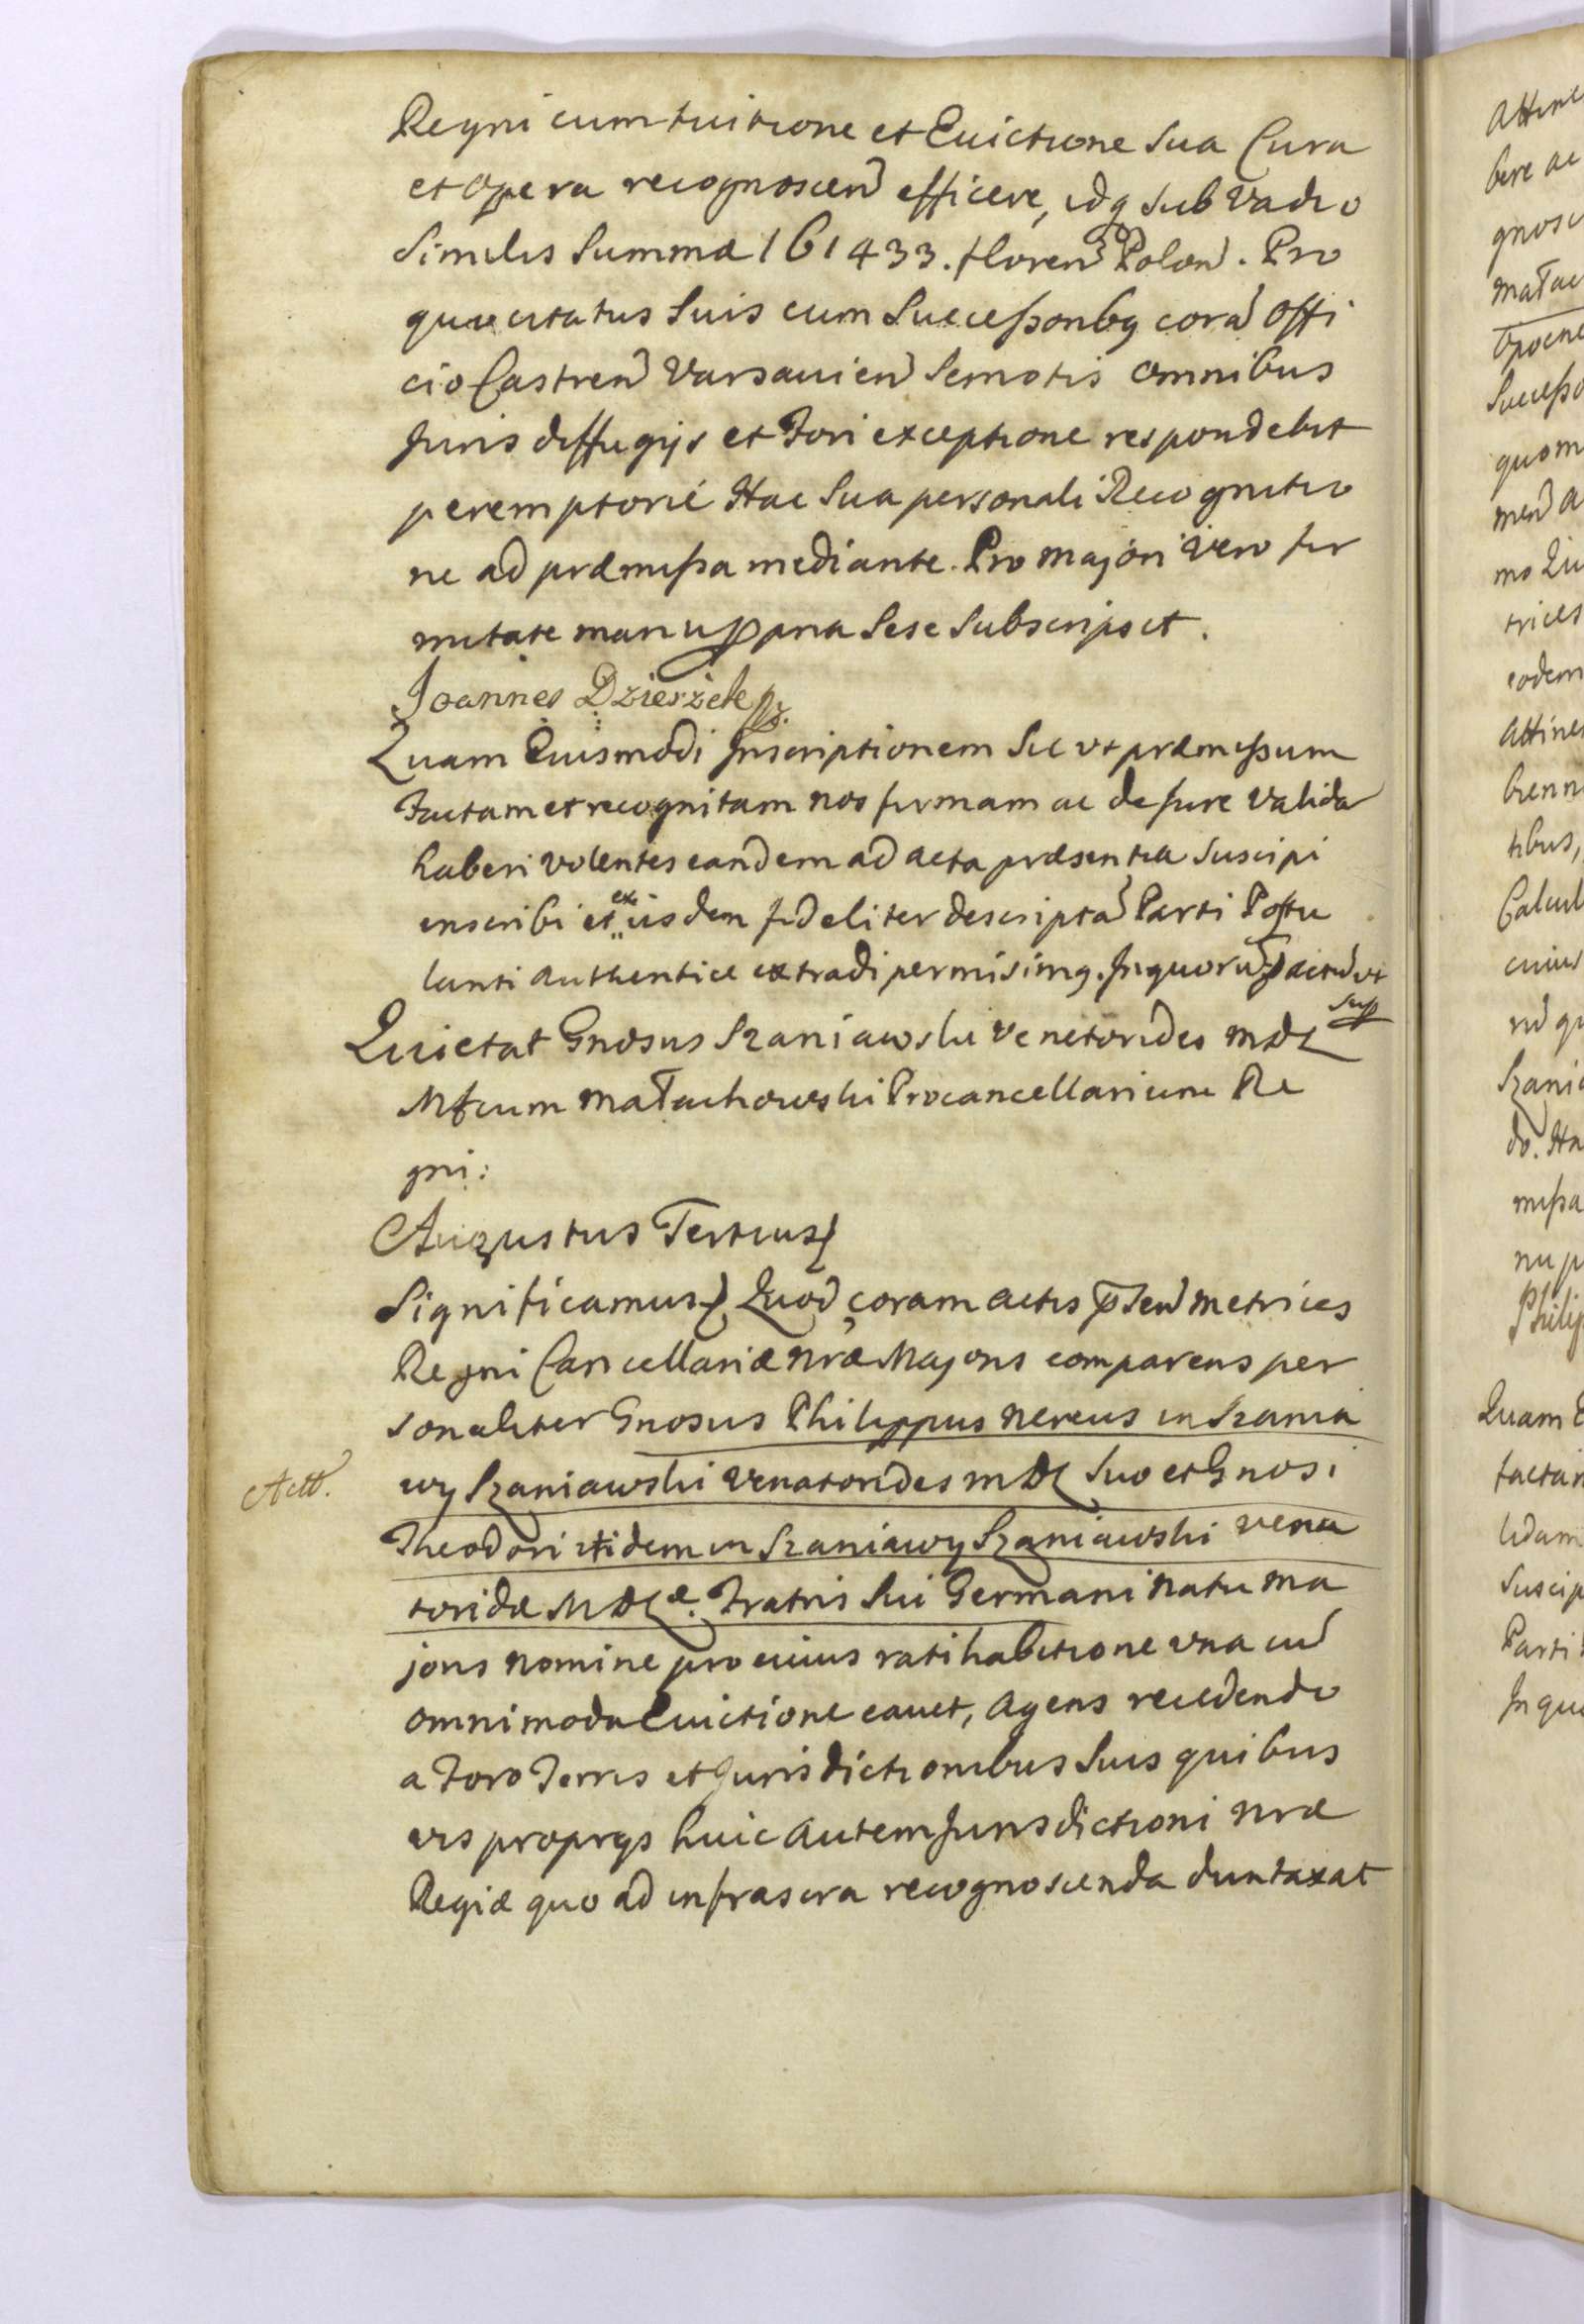 Regni cum tuitione et Evictione Sua Cura
et Opera recognoscen̄ efficere, idq sub Vadio
Similis Summæ 161433. floren̄ Polon̄. Pro
quo citatus Suis cum Successonbq corā Offi
cio Castren̄ Varsavien̄ Semotis omnibus
Juris diffugijs et Fori exceptione respondebit
peremptorié Hac Sua personali Recognitio
ne ad præmissa mediante. Pro majori vero fir
mitate manu ppria Sese Subscripsit.
Joannes Dzierżek
Quam Eiusmodi Inscriptionem Sic vt præmissum
Factam et recognitam nos firmam ac de Jure valida
haberi volentes eandem ad acta præsentia Suscipi
inscribi et ex iisdem fideliter descriptā Parti Postu
lanti authentice extradi permisimq. In quorū actū vt
sup
Quietat Gnosus Szaniawski Venetorides MDL
Mfcum Małachowski Procancellarium Re
gni:
Augustus Tertius
Significamus Quod coram actis pñsen̄ Metrices
Regni Cancellariæ nræ Majoris comparens per
sonaliter Gnosus Philippus Nereus in Szania
Actt.
wy Szaniawski Venatorides MDL Suo et Gnosi
Theodori itidem in Szaniawy Szaniawski vena
toridæ MDLæ. Fratris Sui Germani natu ma
joris nomine pro cuius ratihabitione vna cū
omnimoda Evictione cavet, agens recedendo
a Foro Terris et Jurisdictionibus Suis quibus
vis proprijs huic autem Jurisdictioni nræ
Regiæ quo ad infrascra recognoscenda duntaxat
attine
bere ac
gnosc
Małac
Opocne
Successo
quom
men̄ a
mo Qu
trices
eodem
attine
bienn
tibus,
Calcul
cuius
Szania
do. Ha
missa
nu p
Philip
Quam E
factam
lidam
Suscip
Parti
In quo